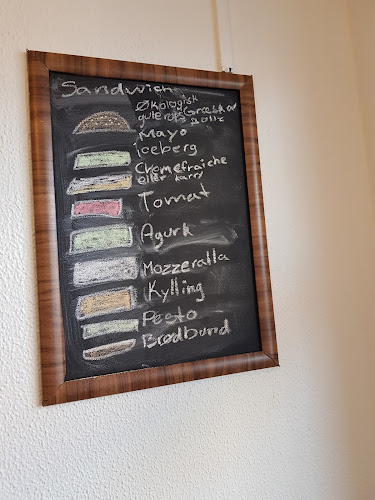 Sandwich
Økologisk
gulerods Græskar
Bolle
Mayo
iceberg
Cremefraiche
eller karry
Tomat
Agurk
Mozzeralla
Kylling
Pesto
Brødbund